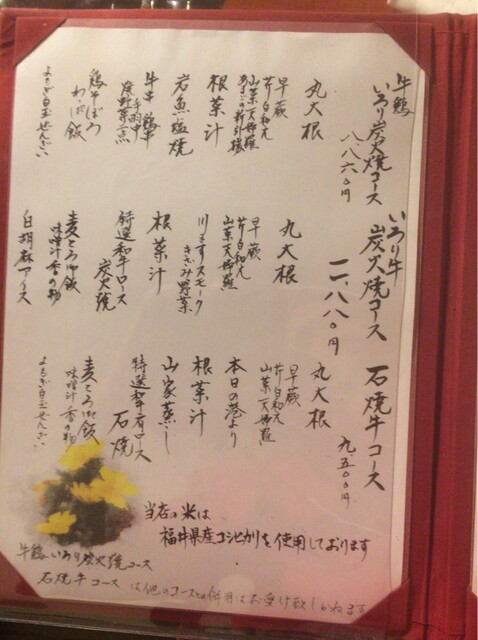 牛鶏
いろり炭火焼コース
八、八六〇円
丸大根
早蕨
芹白和え
山菜天婦羅
根菜汁
岩魚塩焼
牛串 鶏串
鶏そぼろ
わっぱ飯
よもぎ白玉ぜんざい
いろり牛
炭火焼コース
一一、八八〇円
丸大根
早蕨
芹白和え
山菜天婦羅
川ますスモーク
きざみ野菜
根菜汁
特選和牛ロース
炭火焼
麦とろろ飯
味噌汁 香の物
白胡麻アイス
石焼牛コース
九、五〇〇円
丸大根
早蕨
芹白和え
山菜天婦羅
本日の港より
根菜汁
山家蒸し
特選和牛ロース
石焼
麦とろろ飯
味噌汁 香の物
よもぎ白玉ぜんざい
当店の米は
福井県産コシヒカリを使用しております
牛鶏いろり炭火焼コース
石焼牛コース は他のコースとの併用はお受け致しかねます